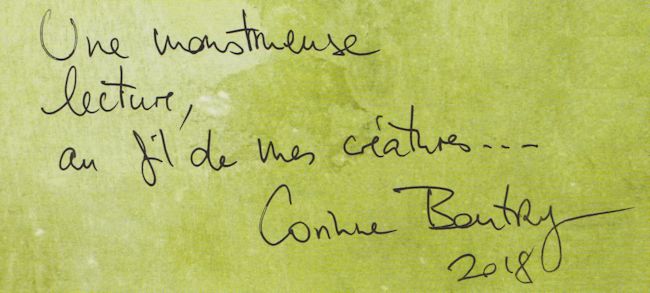 Une monstrueuse
lecture,
au fil de mes créatures...
Corinne Boutry
2018